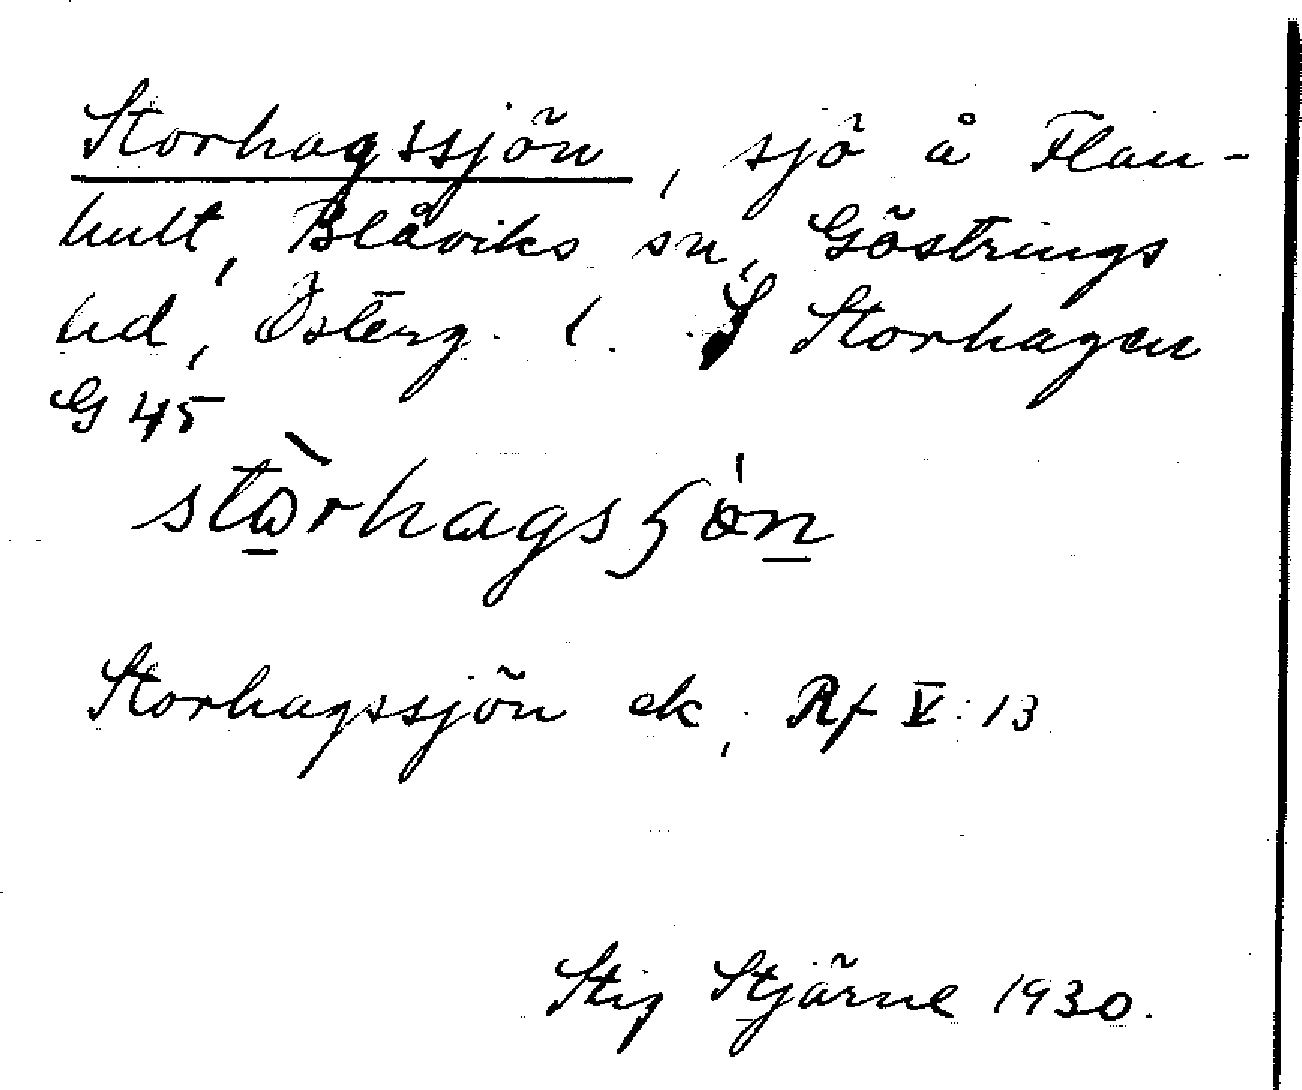 Storhagssjön, sjö å Flan-
hult, Blåviks sn, Göstrings
hd, Österg. l. S Storhagen
G 45
stòrhagsʃön
Storhagssjön ek, Rf V: 13
Stig Stjärne 1930.